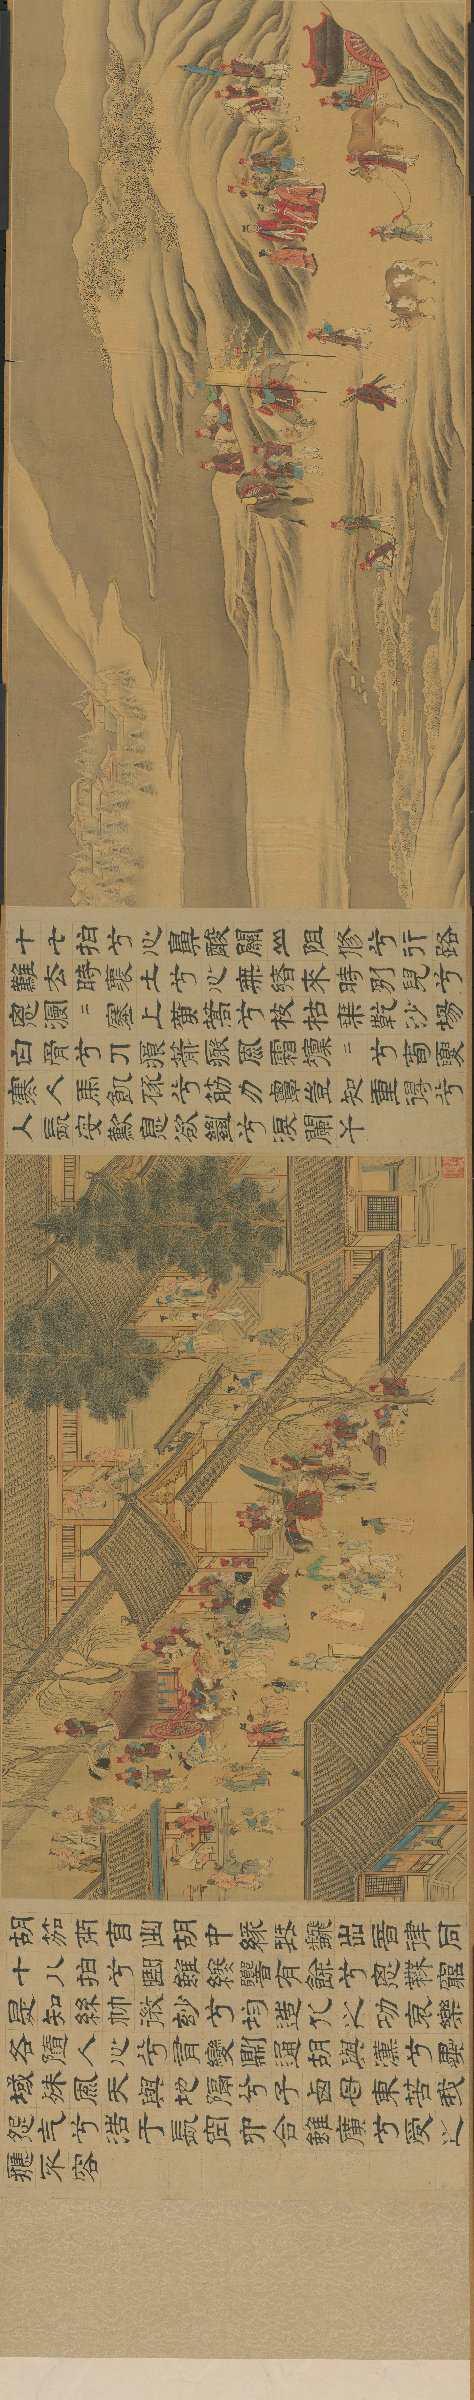 十七拍兮心鼻酸關山阻修兮行路
難去時懷土兮心無緒來時別兒兮
思漫=塞上黃蒿兮枝枯葉乾沙場
白骨兮刀痕箭瘢風霜凜=兮春夏
寒人馬飢豗兮筋力單豈知重得兮
入長安歎息欲絕兮淚闌干
胡笳本自出胡中緣琴翻出音律同
十八拍兮曲雖終響有餘兮思無窮
是知絲竹微妙兮均造化之功哀樂
各隨人心兮有變則通胡與漢兮異
域殊風天與地隔兮子西母東苦我
怨气兮浩于長空六合雖廣兮受之
應不容